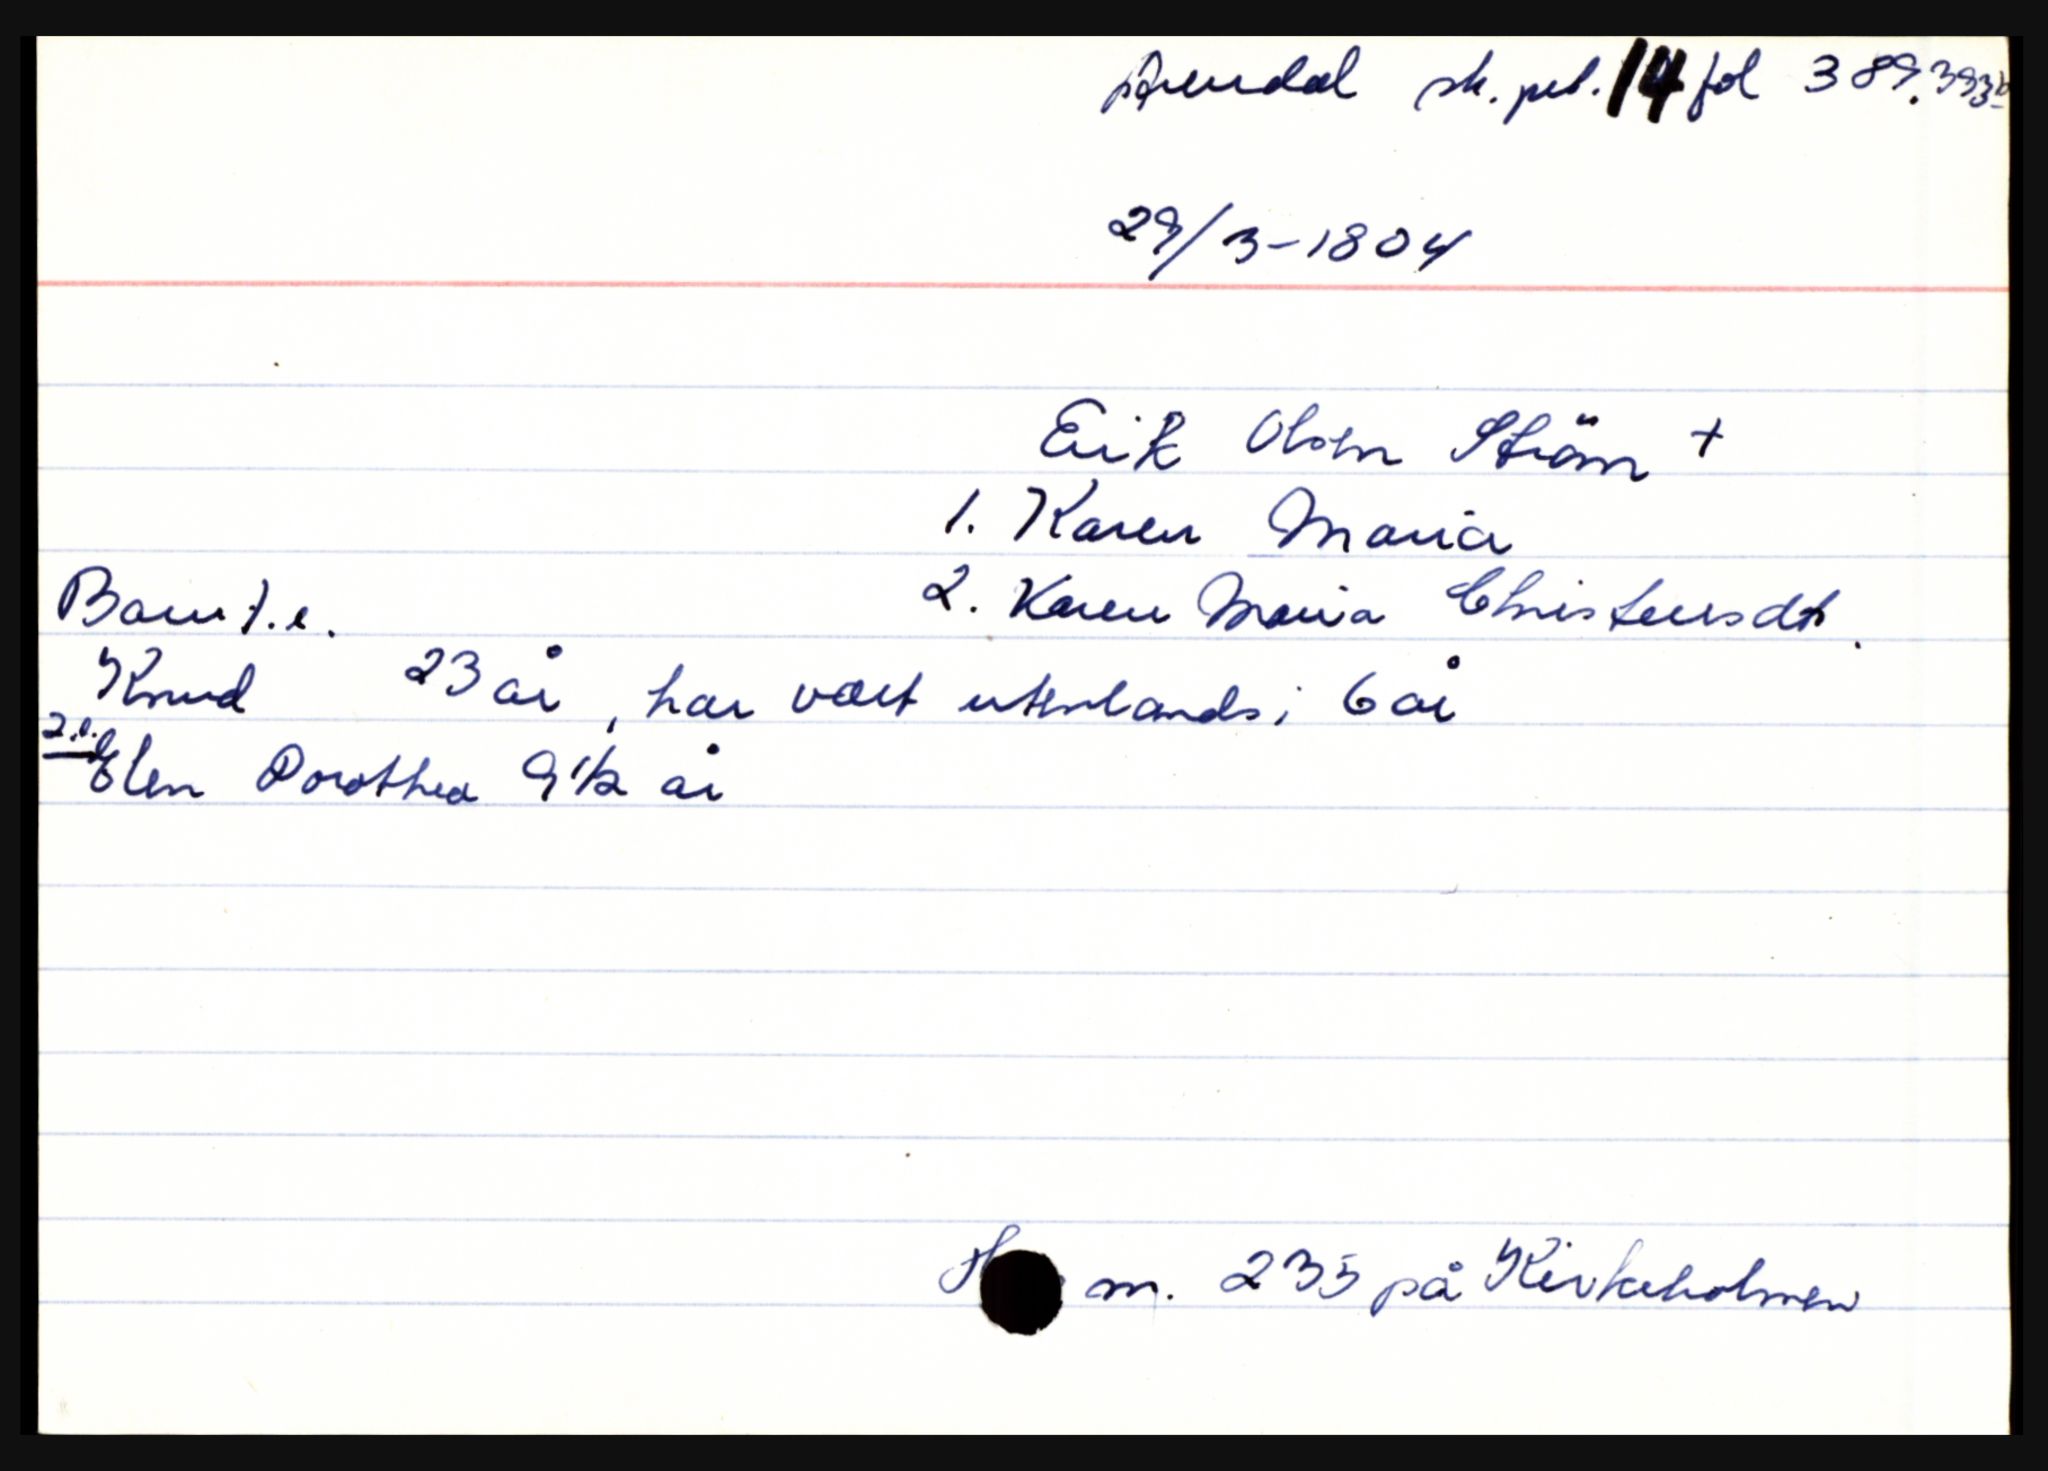 Arendal sk. pr. 14 fol 389.393b
29/3-1804
Erik Olsen Ström +
1. Karen Maria
2. Karen Maria Christensdt.
Barn 1.e.
Knud 23 år, har vært utenlands i 6 år
2.e.
Elen Dorothea 9 1/2 år
m. 235 på Kirkeholmen